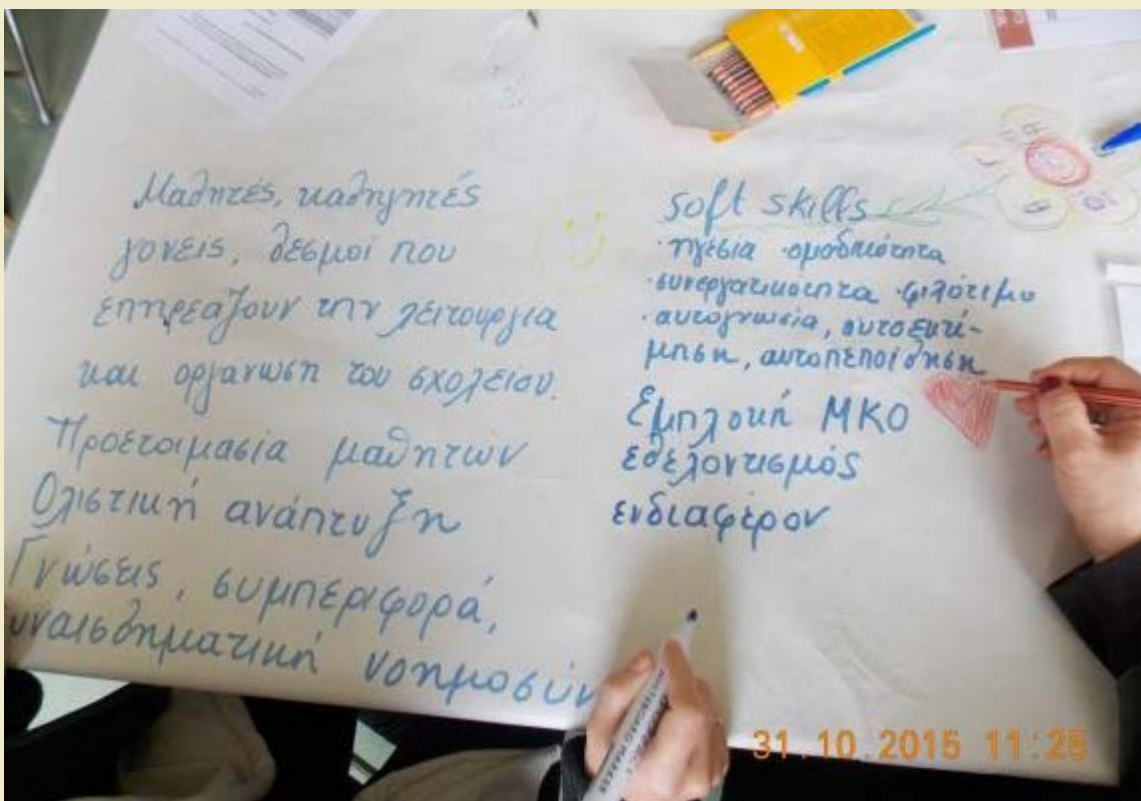 Μαθητές, καθηγητές
γονεις, δεσμοί που
επηρεάζουν την λειτουργια
και οργάνωση του σχολειου.
Προετοιμασία μαθητών
Ολιστική ανάπτυξη
Γνώσεις, συμπεριφορά,
υναισθηματική νοημοσύν
soft skills
·ηγεσια ·ομαδικότητα
·συνεργατικοτητα ·φιλότιμο
·αυτογνωσία, αυτοεκτί-
μηση, αυτοπεποίθηση
Εμπλοκή ΜΚΟ
εθελοντισμός
ενδιαφέρον
31.10.2015 11:25